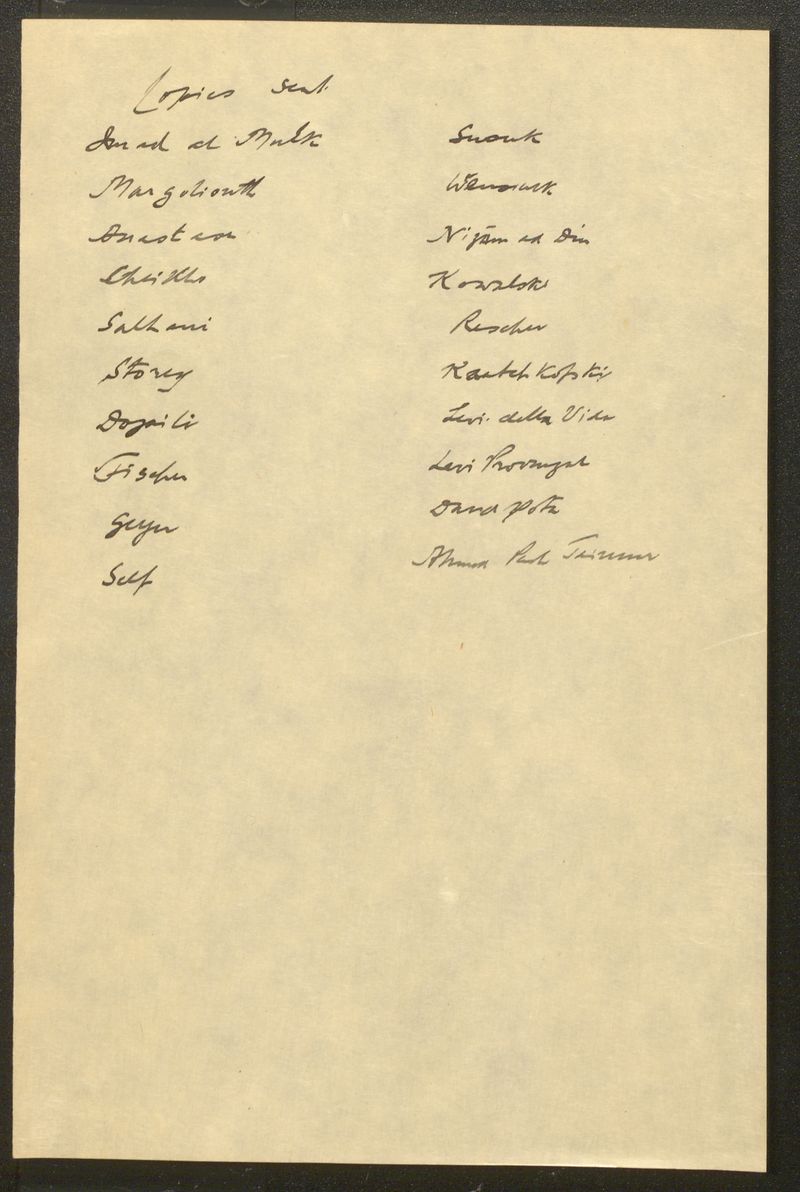 Copies sent
Imad al Mulk
Margoliouth
Anastase
Cheikho
Salhani
Storey
Dojaili
Fischer
Geyer
Self
Snouk
Wensinck
Nizām ad Din
Kowalski
Rescher
Kratchkofski
Levi della Vida
Levi Provençal
Daud pota
Ahmed Pash Taimour